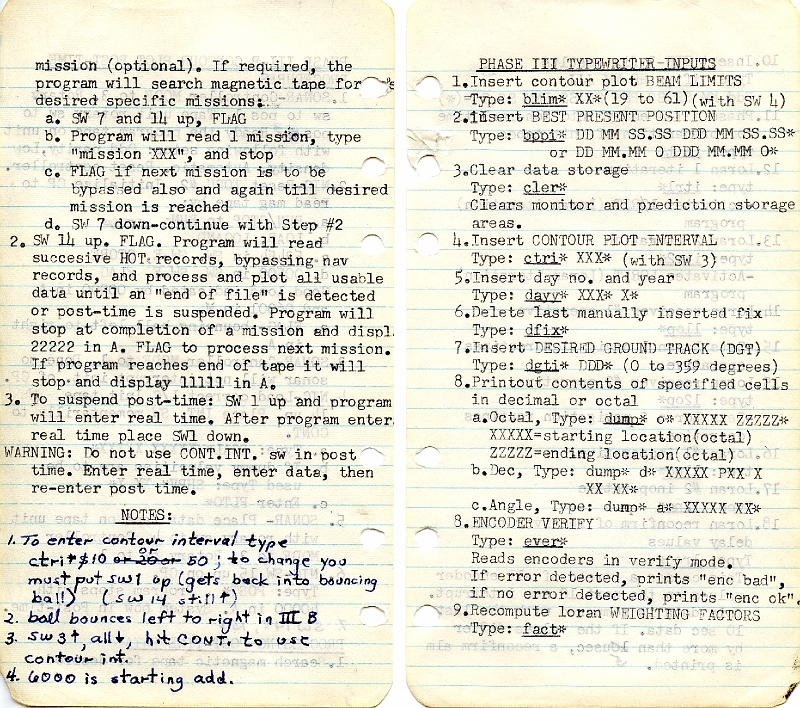 mission (optional). If required, the
program will search magnetic tape for
desired specific missions:
a. SW 7 and 14 up, FLAG
b. Program will read 1 mission, type
"mission XXX", and stop
c. FLAG if next mission is to be
bypassed also and again till desired
mission is reached
d. SW 7 down-continue with Step #2
2. SW 14 up. FLAG. Program will read
succesive HOT records, bypassing nav
records, and process and plot all usable
data until an "end of file" is detected
or post-time is suspended. Program will
stop at completion of a mission and displ.
22222 in A. FLAG to process next mission.
If program reaches end of tape it will
stop and display 11111 in A.
3. To suspend post-time: SW 1 up and program
will enter real time. After program enter
real time place SW1 down.
WARNING: Do not use CONT.INT. sw in post
time. Enter real time, enter data, then
re-enter post time.
NOTES:
1. To enter contour interval type
ctri*$10 or 20 or 50; to change you
must put sw1 up (gets back into bouncing
ball) (sw 14 still↑)
2. ball bounces left to right in III B
3. SW3↑, all↓, hit CONT. to use
contour int.
4. 6000 is starting add.
PHASE III TYPEWRITER INPUTS
1.Insert contour plot BEAM LIMITS
Type: blim* XX*(19 to 61)(with SW 4)
2.Insert BEST PRESENT POSITION
Type: bppi* DD MM SS.SS DDD MM SS.SS*
or DD MM.MM O DDD MM.MM O*
3.Clear data storage
Type: cler*
Clears monitor and prediction storage
areas.
4.Insert CONTOUR PLOT INTERVAL
Type: ctri* XXX* (with SW 3)
5.Insert day no. and year
Type: dayy* XXX* X*
6.Delete last manually inserted fix
Type: dfix*
7.Insert DESIRED GROUND TRACK (DGT)
Type: dgti* DDD* (0 to 359 degrees)
8.Printout contents of specified cells
in decimal or octal
a.Octal, Type: dump* o* XXXXX ZZZZZ*
XXXXX=starting location(octal)
ZZZZZ=ending location(octal)
b.Dec, Type: dump* d* XXXXX PXX X
XX XX*
c.Angle, Type: dump* a* XXXXX XX*
8.ENCODER VERIFY
Type: ever*
Reads encoders in verify mode.
If error detected, prints "enc bad",
if no error detected, prints "enc ok".
9.Recompute loran WEIGHTING FACTORS
Type: fact*